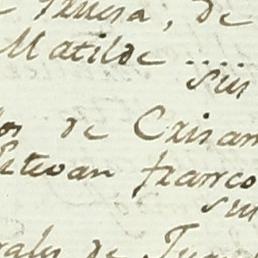 Teresa, de
Matilde .....
Sus
los de Crisan
Estevan franco
Sus
rales de Juan